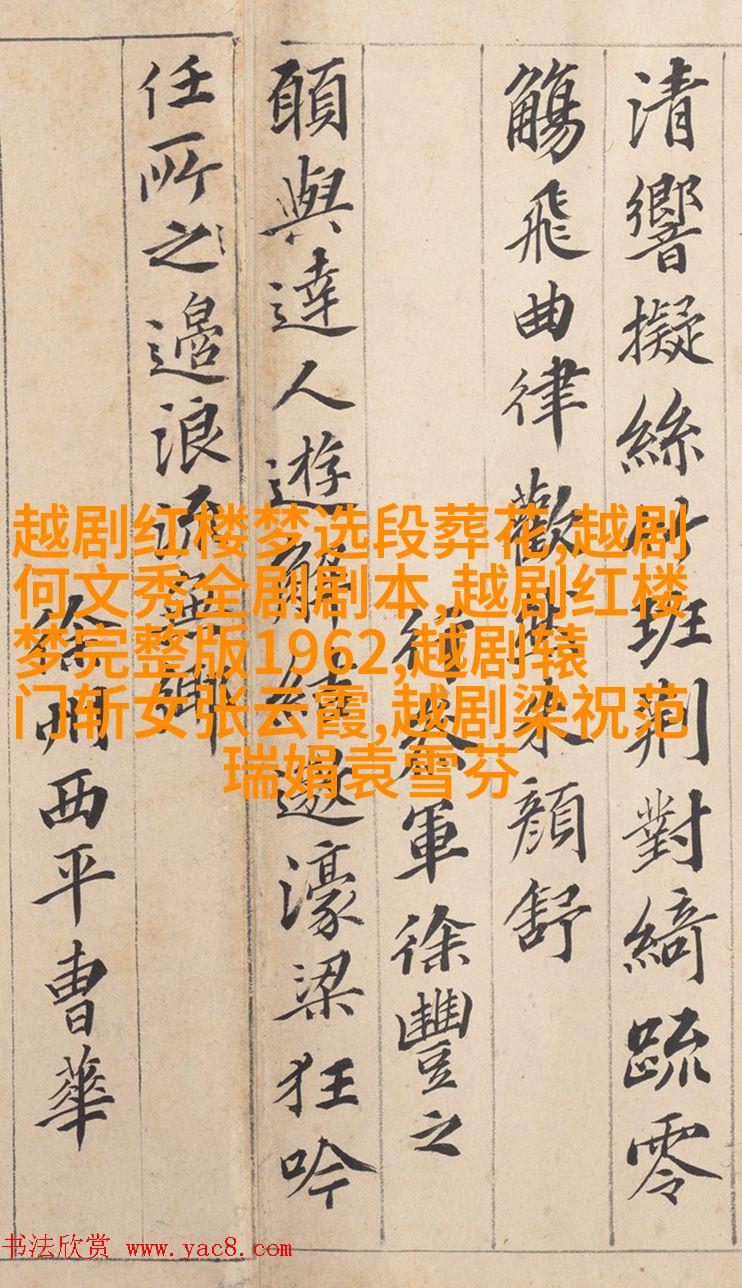 清響擬絲竹班荆對綺䟽零
觴飛曲律歡然朱顏舒
行參軍徐豐之
願與達人遊解結遨濠梁狂吟
任所之邉浪流無鄉
徐州西平曹華
越剧红楼梦选段葬花,越剧
何文秀全剧剧本,越剧红楼
梦完整版1962,越剧辕
门斩女张云霞,越剧梁祝范
瑞娟袁雪芬
书法欣赏 www.yac8.com